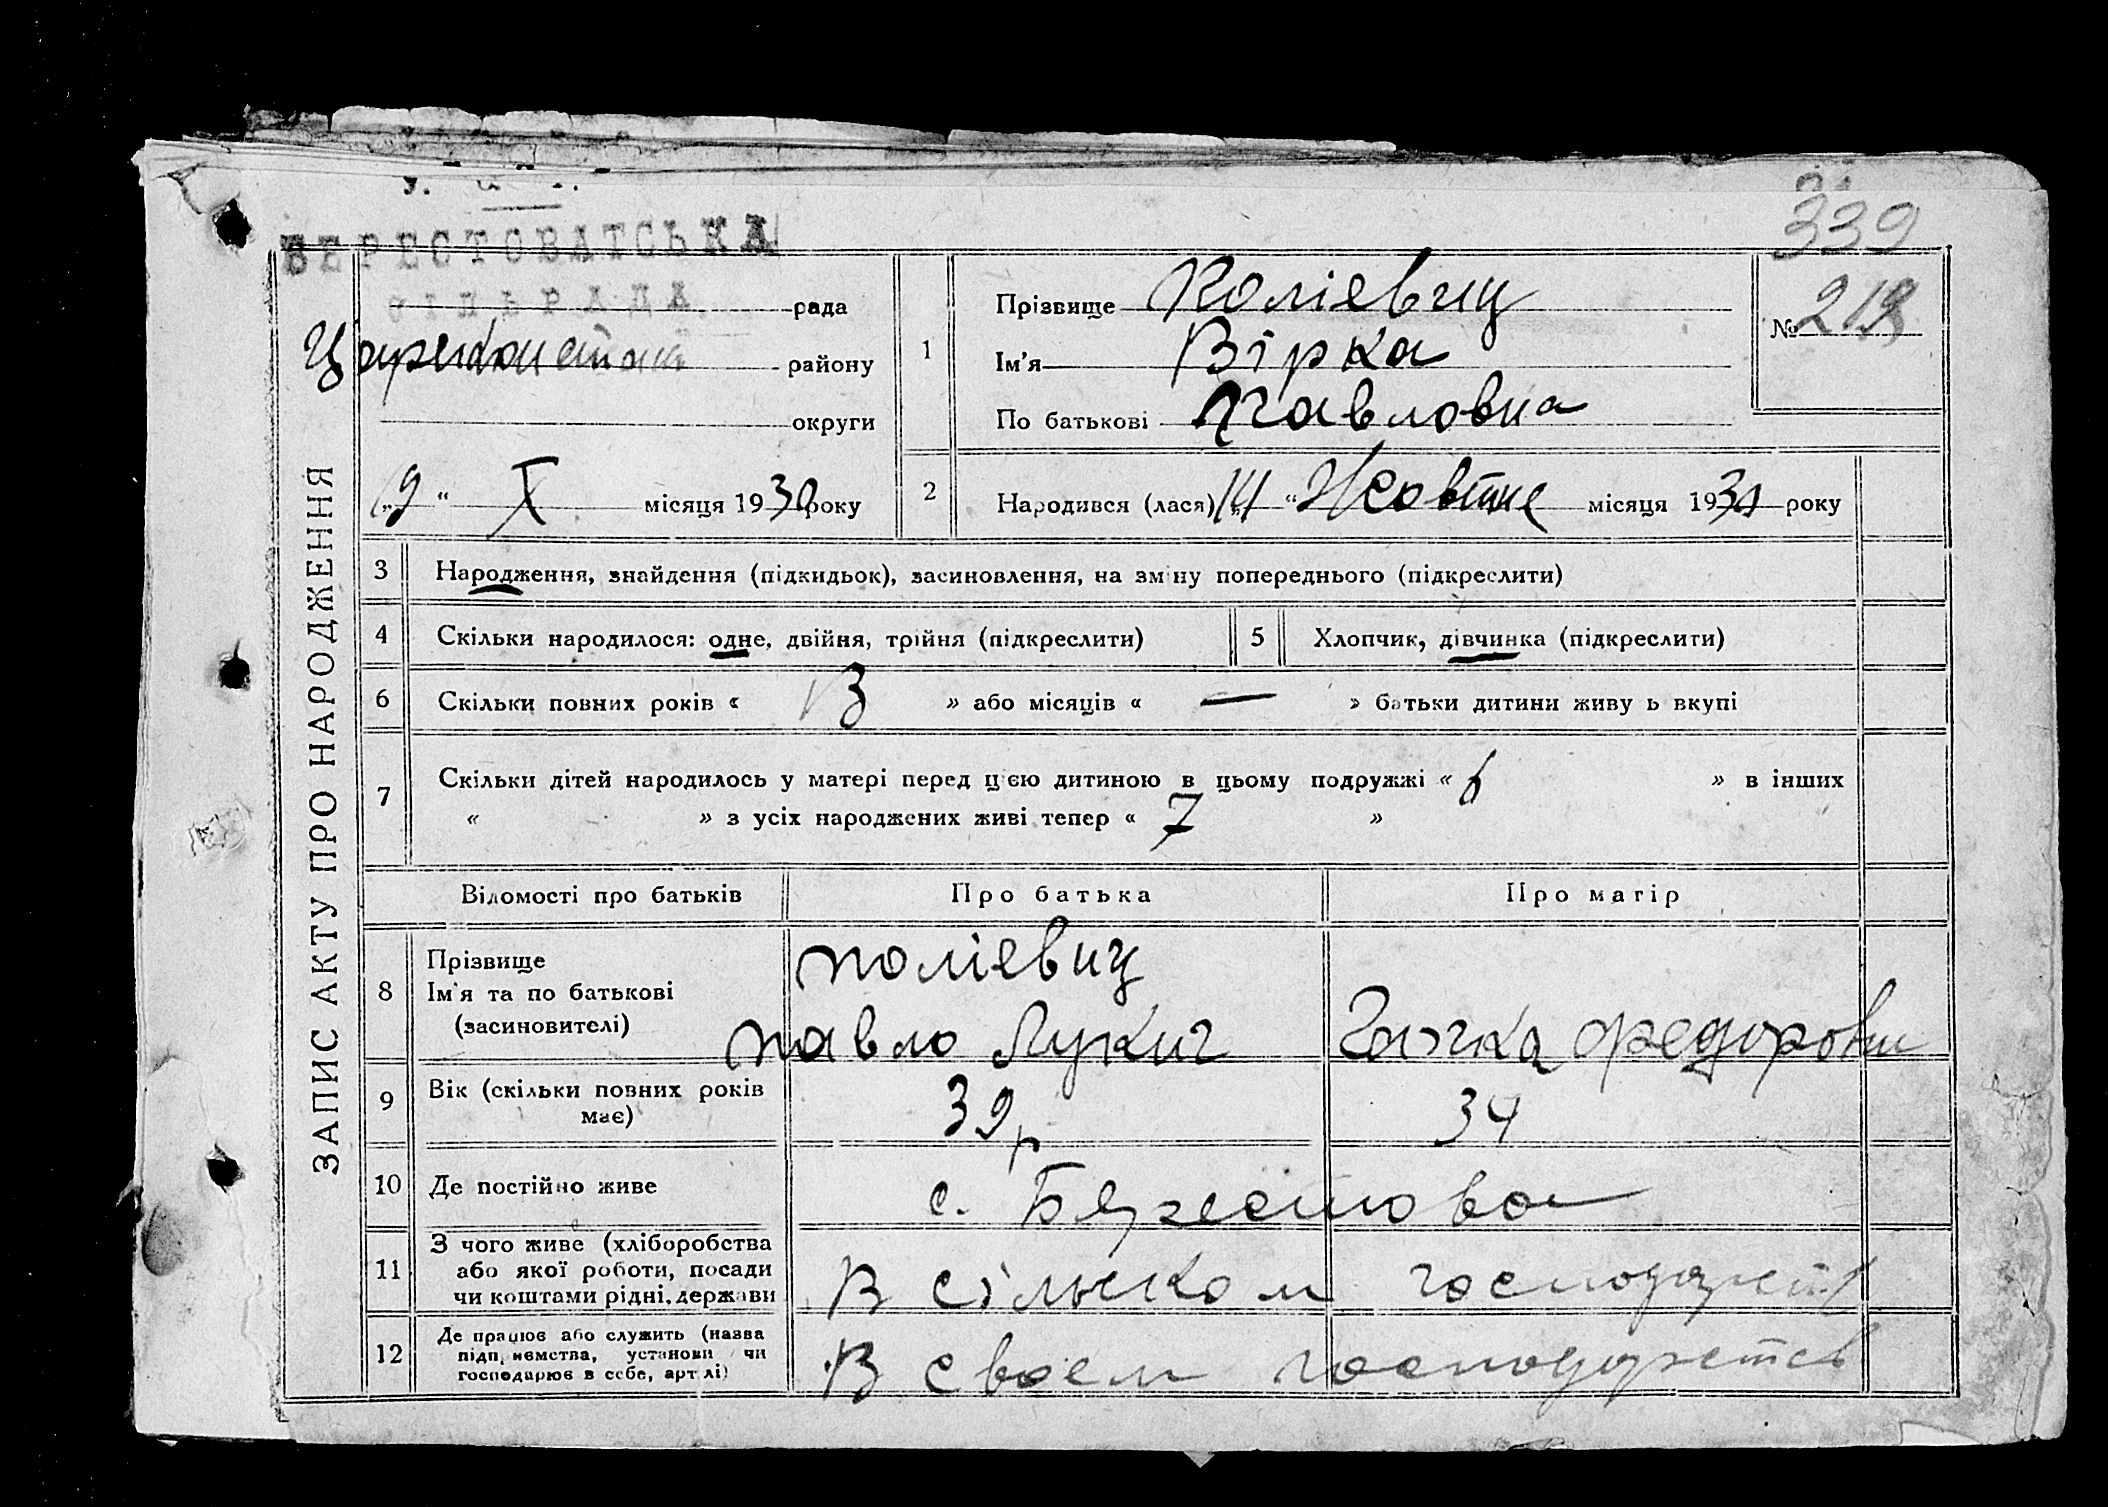 339
У. С. Р. Р.
БЕРЕСТОВАТСЬКА
СІЛЬРАДА
рада
району
округи
„9“ X місяця 1930 року
ЗАПИС АКТУ ПРО НАРОДЖЕННЯ
1 Прізвище Поліевиц
Ім'я Вірка
По батькові Павловна
№ 219
2 Народився (лася) „14“ Жовтне місяця 1930 року
3 Народження, знайдення (підкидьок), засиновлення, на зміну попереднього (підкреслити)
4 Скільки народилося: одне, двійня, трійня (підкреслити) 5 Хлопчик, дівчинка (підкреслити)
6 Скільки повних років « 13 » або місяців « — » батьки дитини живуть вкупі
7 Скільки дітей народилось у матері перед цією дитиною в цьому подружжі « 6 » в інших
« » з усіх народжених живі тепер « 7 »
Відомості про батьків Про батька Про матір
8 Прізвище
Ім'я та по батькові
(засиновителі)
Поліевиц
Павло Лукич
Федоровн
9 Вік (скільки повних років
має)
39р
34
10 Де постійно живе
с. Берестова
11 З чого живе (хліборобства
або якої роботи, посади
чи коштами рідні, держави
В сільском господарств
12 Де працює або служить (назва
підприємства, установи чи
господарює в себе, артілі)
В своем господарстві